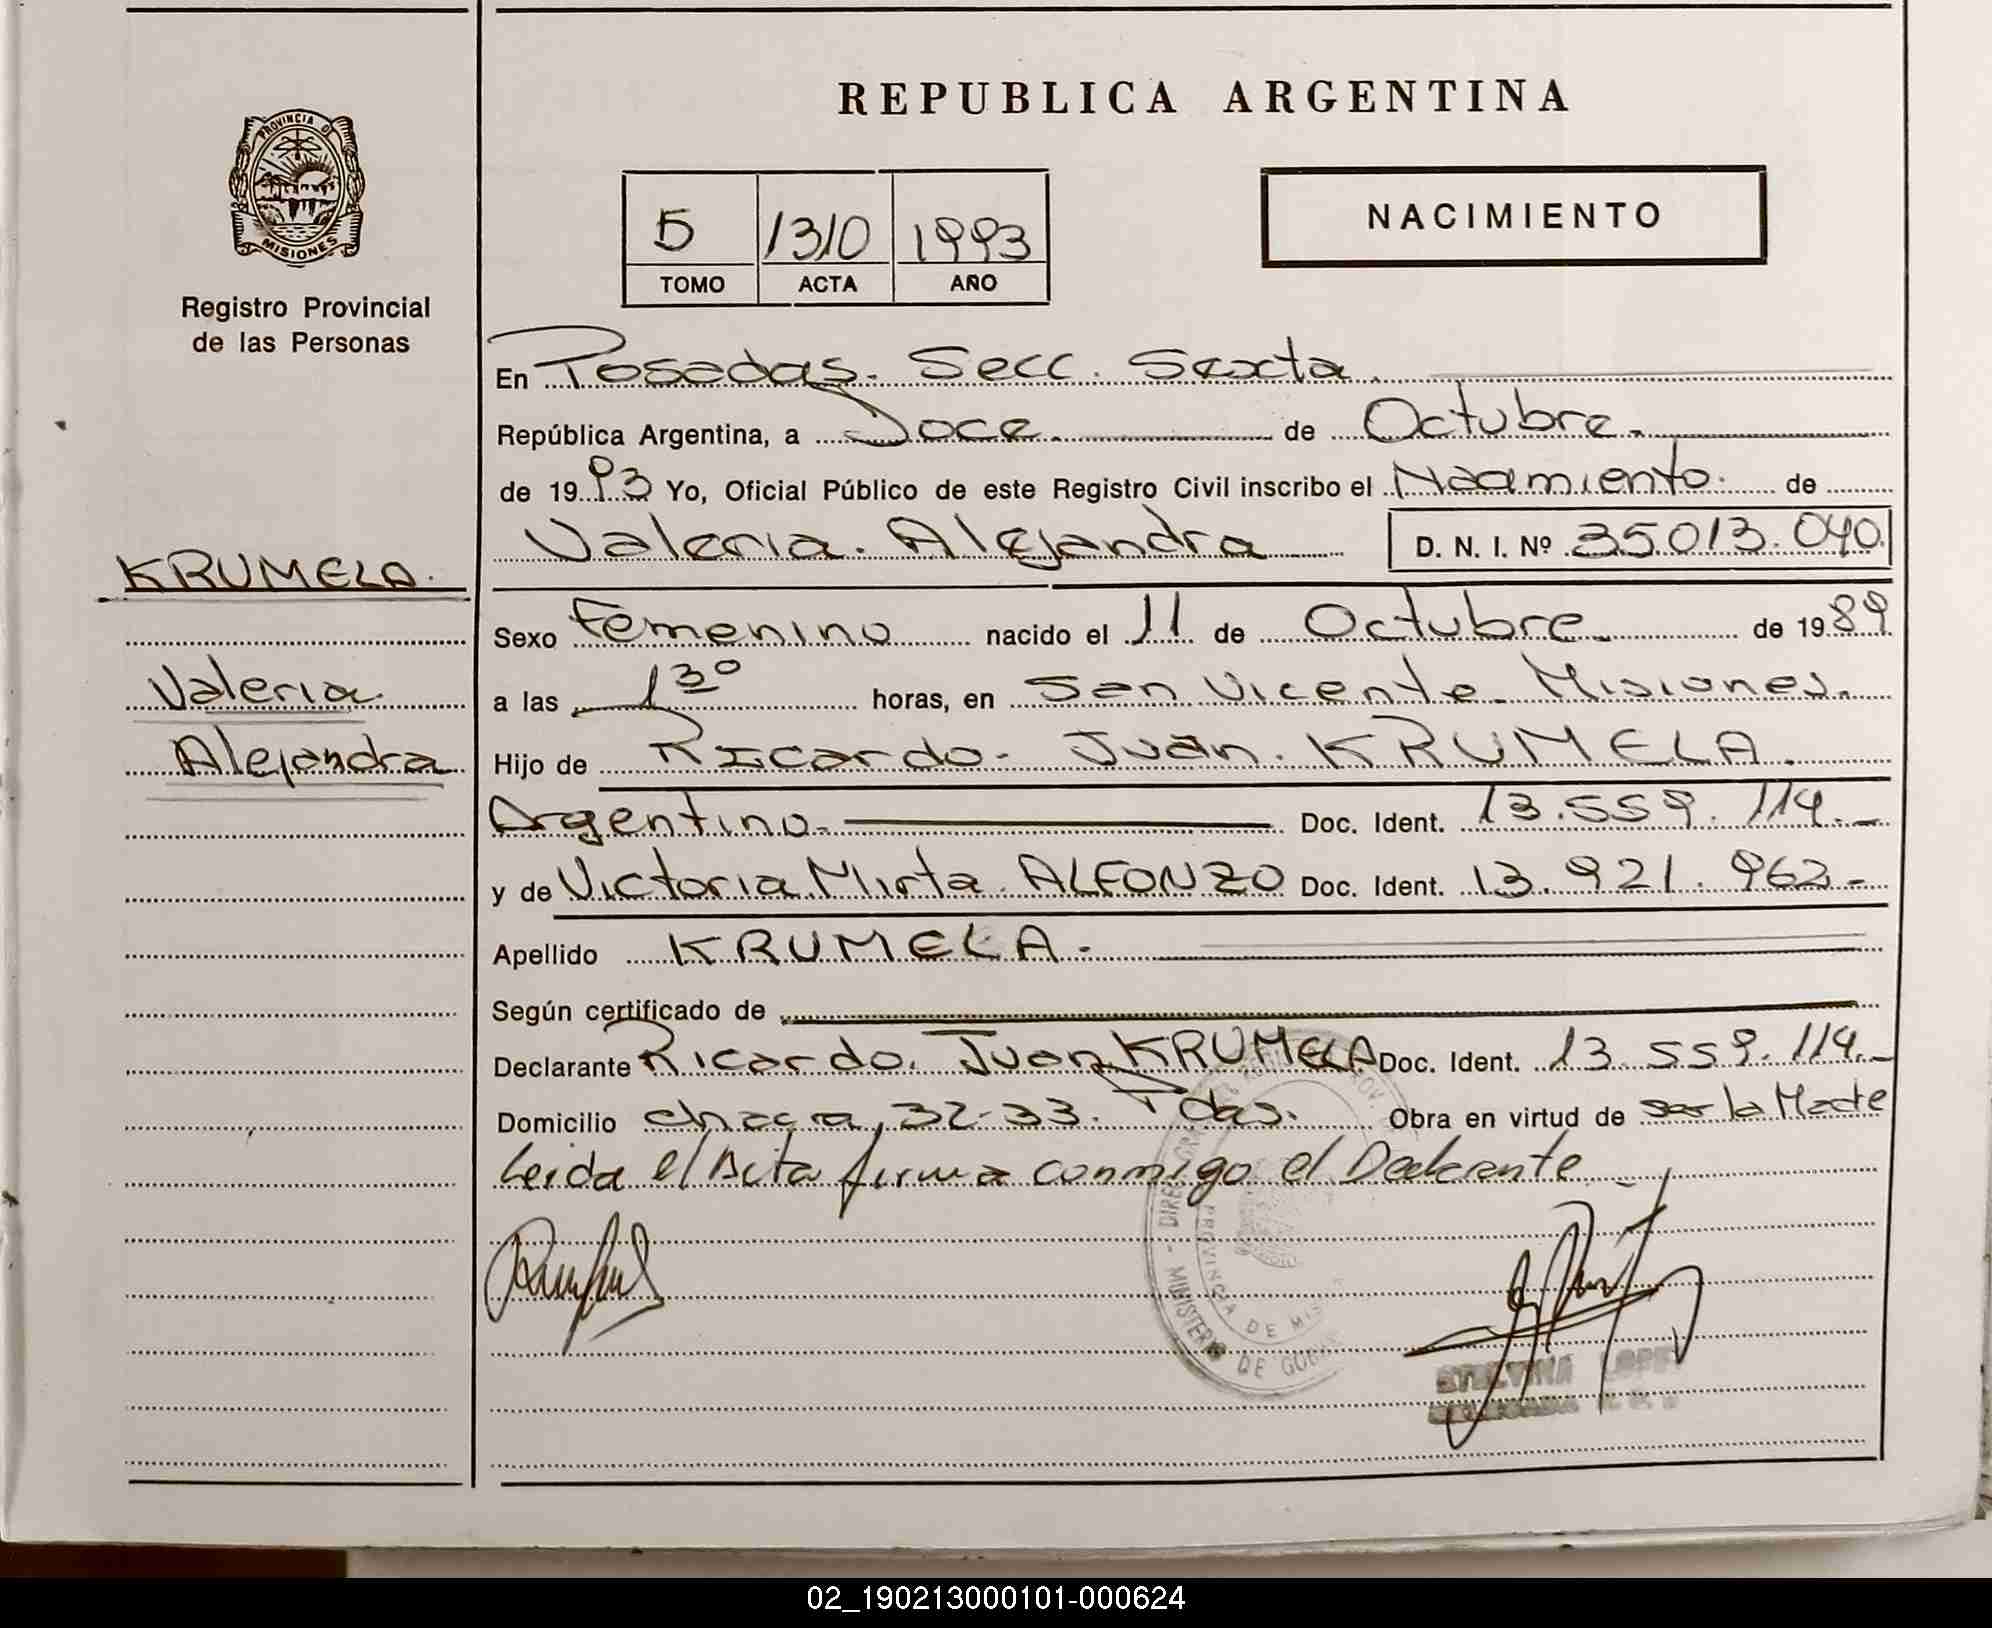 REPUBLICA ARGENTINA
PROVINCIA DE
MISIONES
Registro Provincial
de las Personas
5 1310 1993
TOMO ACTA AÑO
NACIMIENTO
En Posadas. Secc. Sexta.
República Argentina, a Doce. de Octubre.
de 1993 Yo, Oficial Público de este Registro Civil inscribo el Nacimiento. de
Valeria. Alejandra D. N. I. Nº 35.013.040
KRUMELA.
Valeria.
Alejandra
Sexo Femenino nacido el 11 de Octubre. de 1989
a las 13º horas, en San Vicente. Misiones.
Hijo de Ricardo. Juan. KRUMELA.
Argentino. Doc. Ident. 13.559.114.-
y de Victoria Mirta. ALFONZO Doc. Ident. 13.921.962-
Apellido KRUMELA.
Según certificado de
Declarante Ricardo. Juan KRUMELA Doc. Ident. 13.559.114.-
Domicilio chacra, 32-33. Pdas. Obra en virtud de
Leida el Acta firma conmigo el Declarante
MINISTERIO DE
PROVINCIA DE MIS
02_190213000101-000624